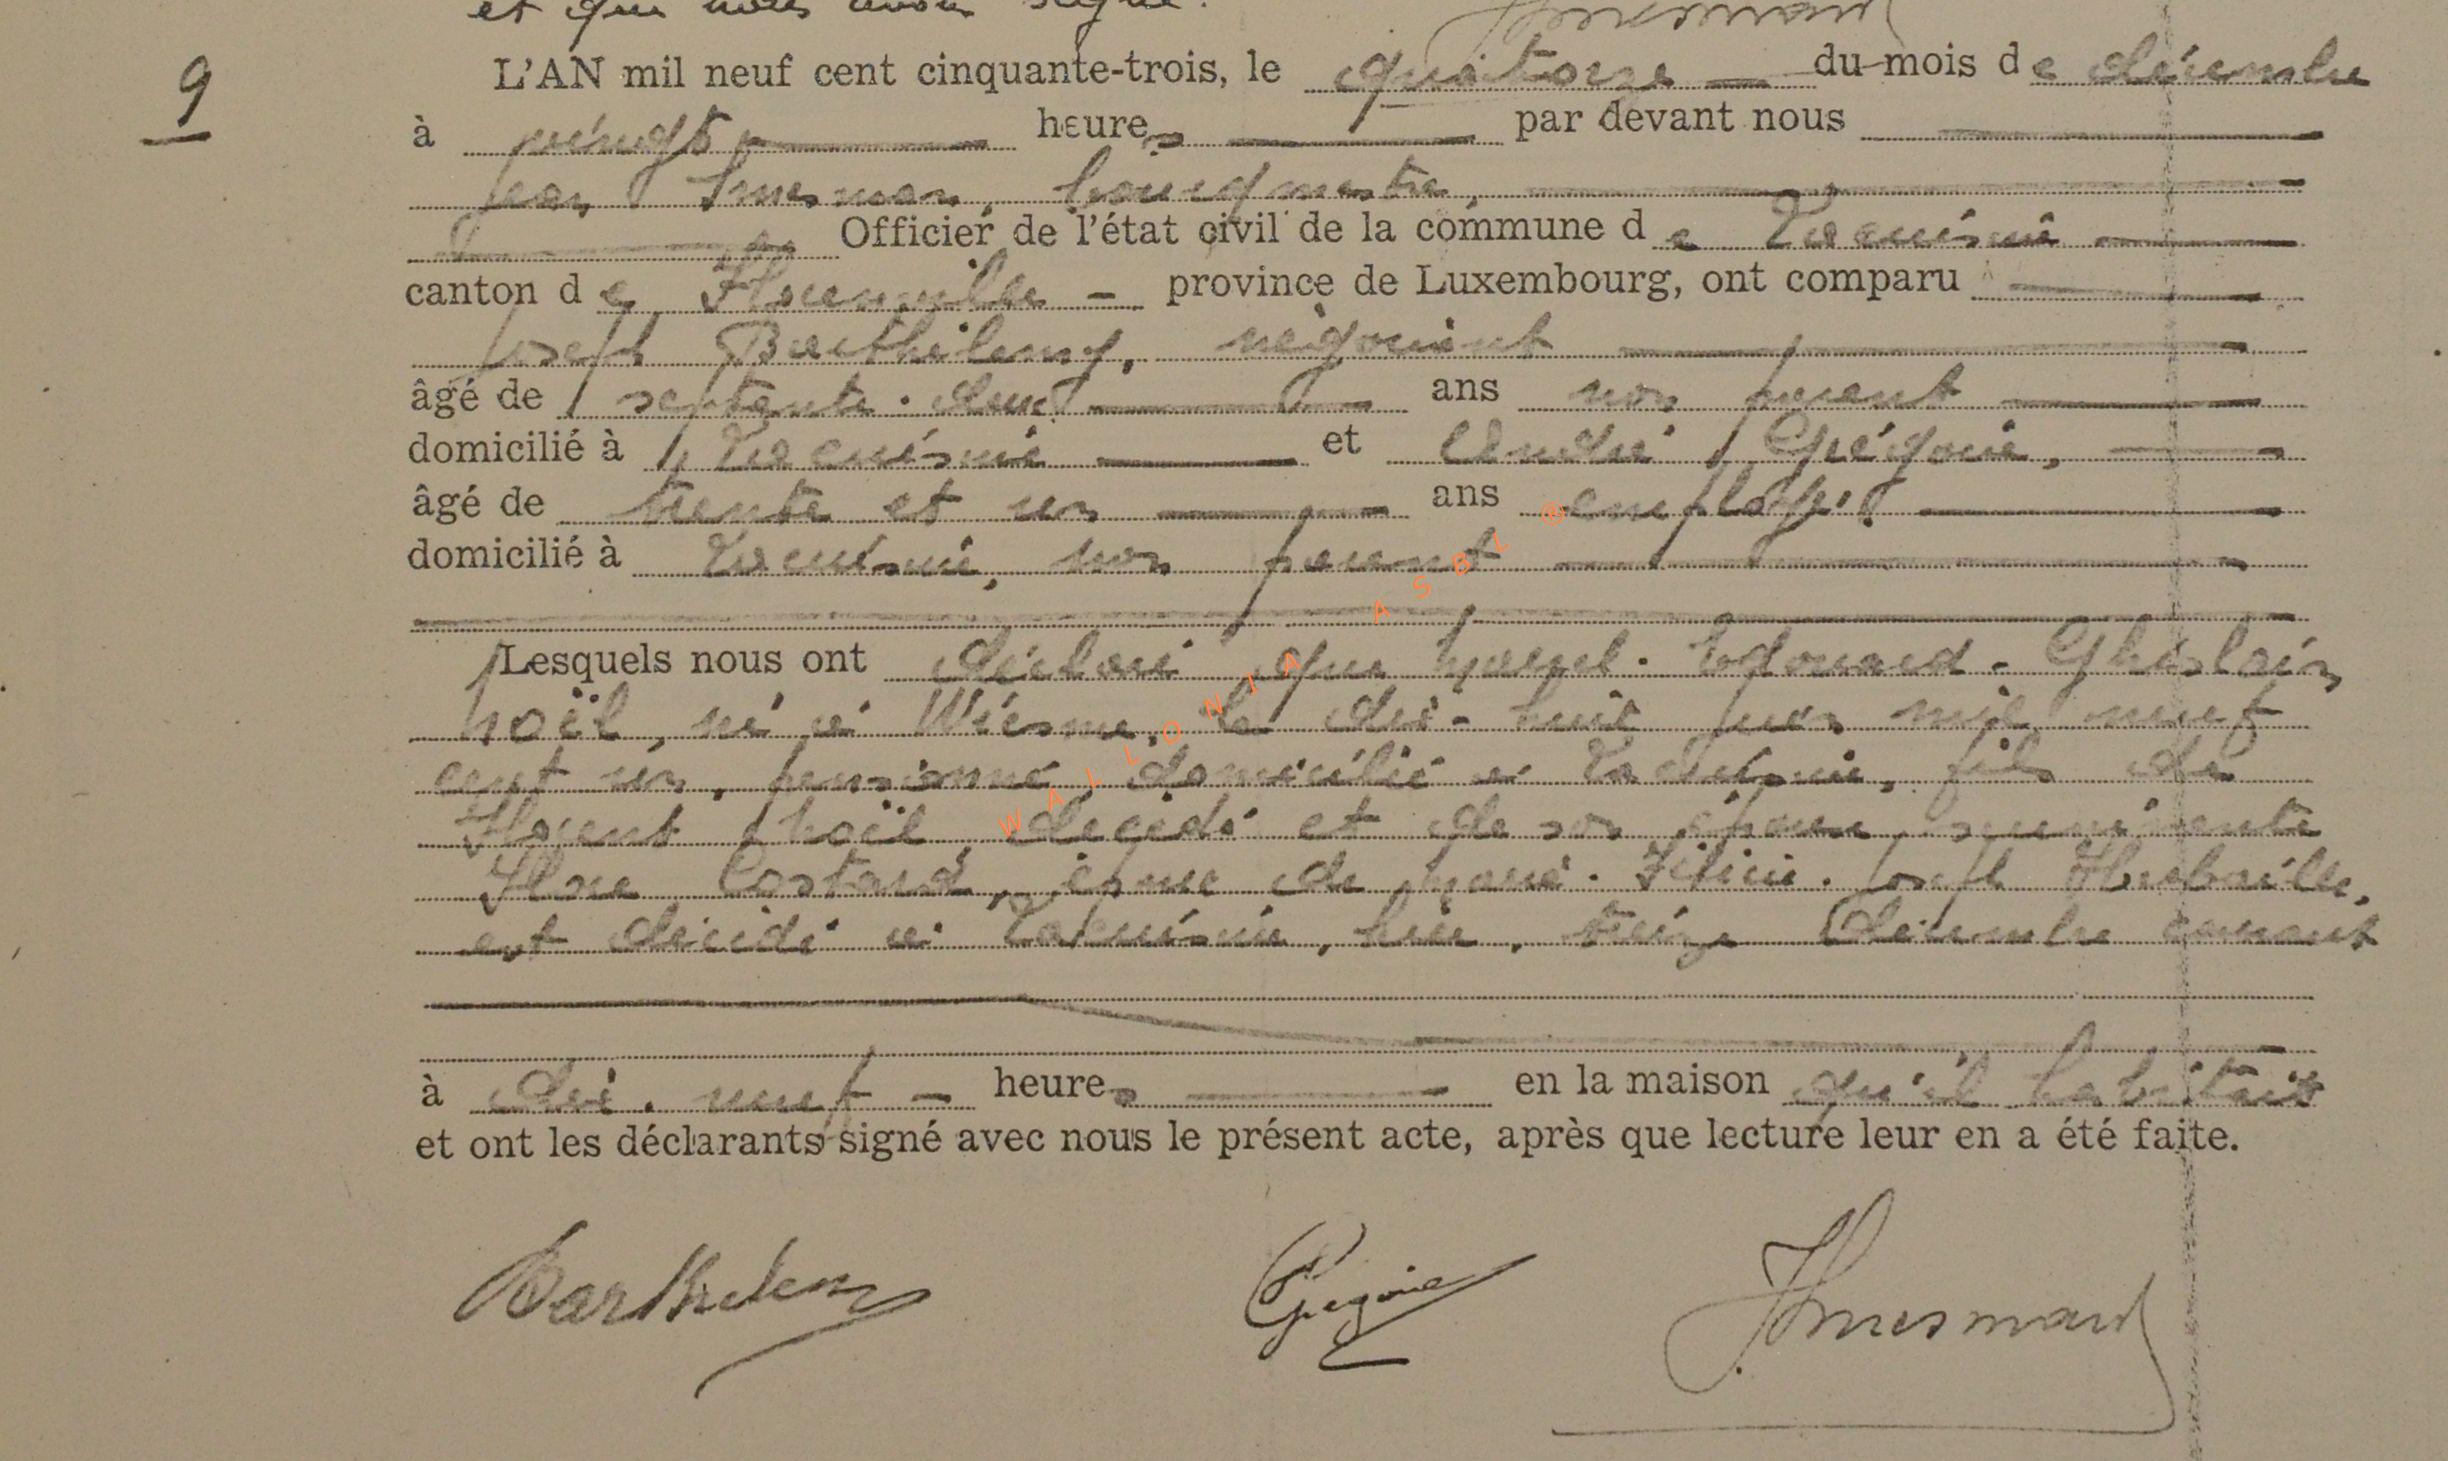 et que nous avons signé.
9
L'AN mil neuf cent cinquante-trois, le quatorze du mois de décembre
à vingt heures par devant nous
Jean bourgmestre,
Officier de l'état civil de la commune de Lacuisine
canton de Florenville province de Luxembourg, ont comparu
Joseph Barthélemy, négociant
âgé de septante-deux ans non parent
domicilié à Lacuisine et André Grégoire,
âgé de trente et un ans employé
domicilié à Lacuisine, non parent
Lesquels nous ont déclaré que Marcel-Edouard-Ghislain
Noël, né à Wiesme, le dix-huit juin mil neuf
cent un, pensionné, domicilié à Lacuisine, fils de
Florent Noël, décédé et de son épouse survivante
Flore époux de Marie-Félicie-Joseph
est décédé à Lacuisine, hier, treize décembre courant
à dix-neuf heures en la maison qu'il habitait
et ont les déclarants signé avec nous le présent acte, après que lecture leur en a été faite.
Barthelemy Grégoire
WALLONIA ASBL ®